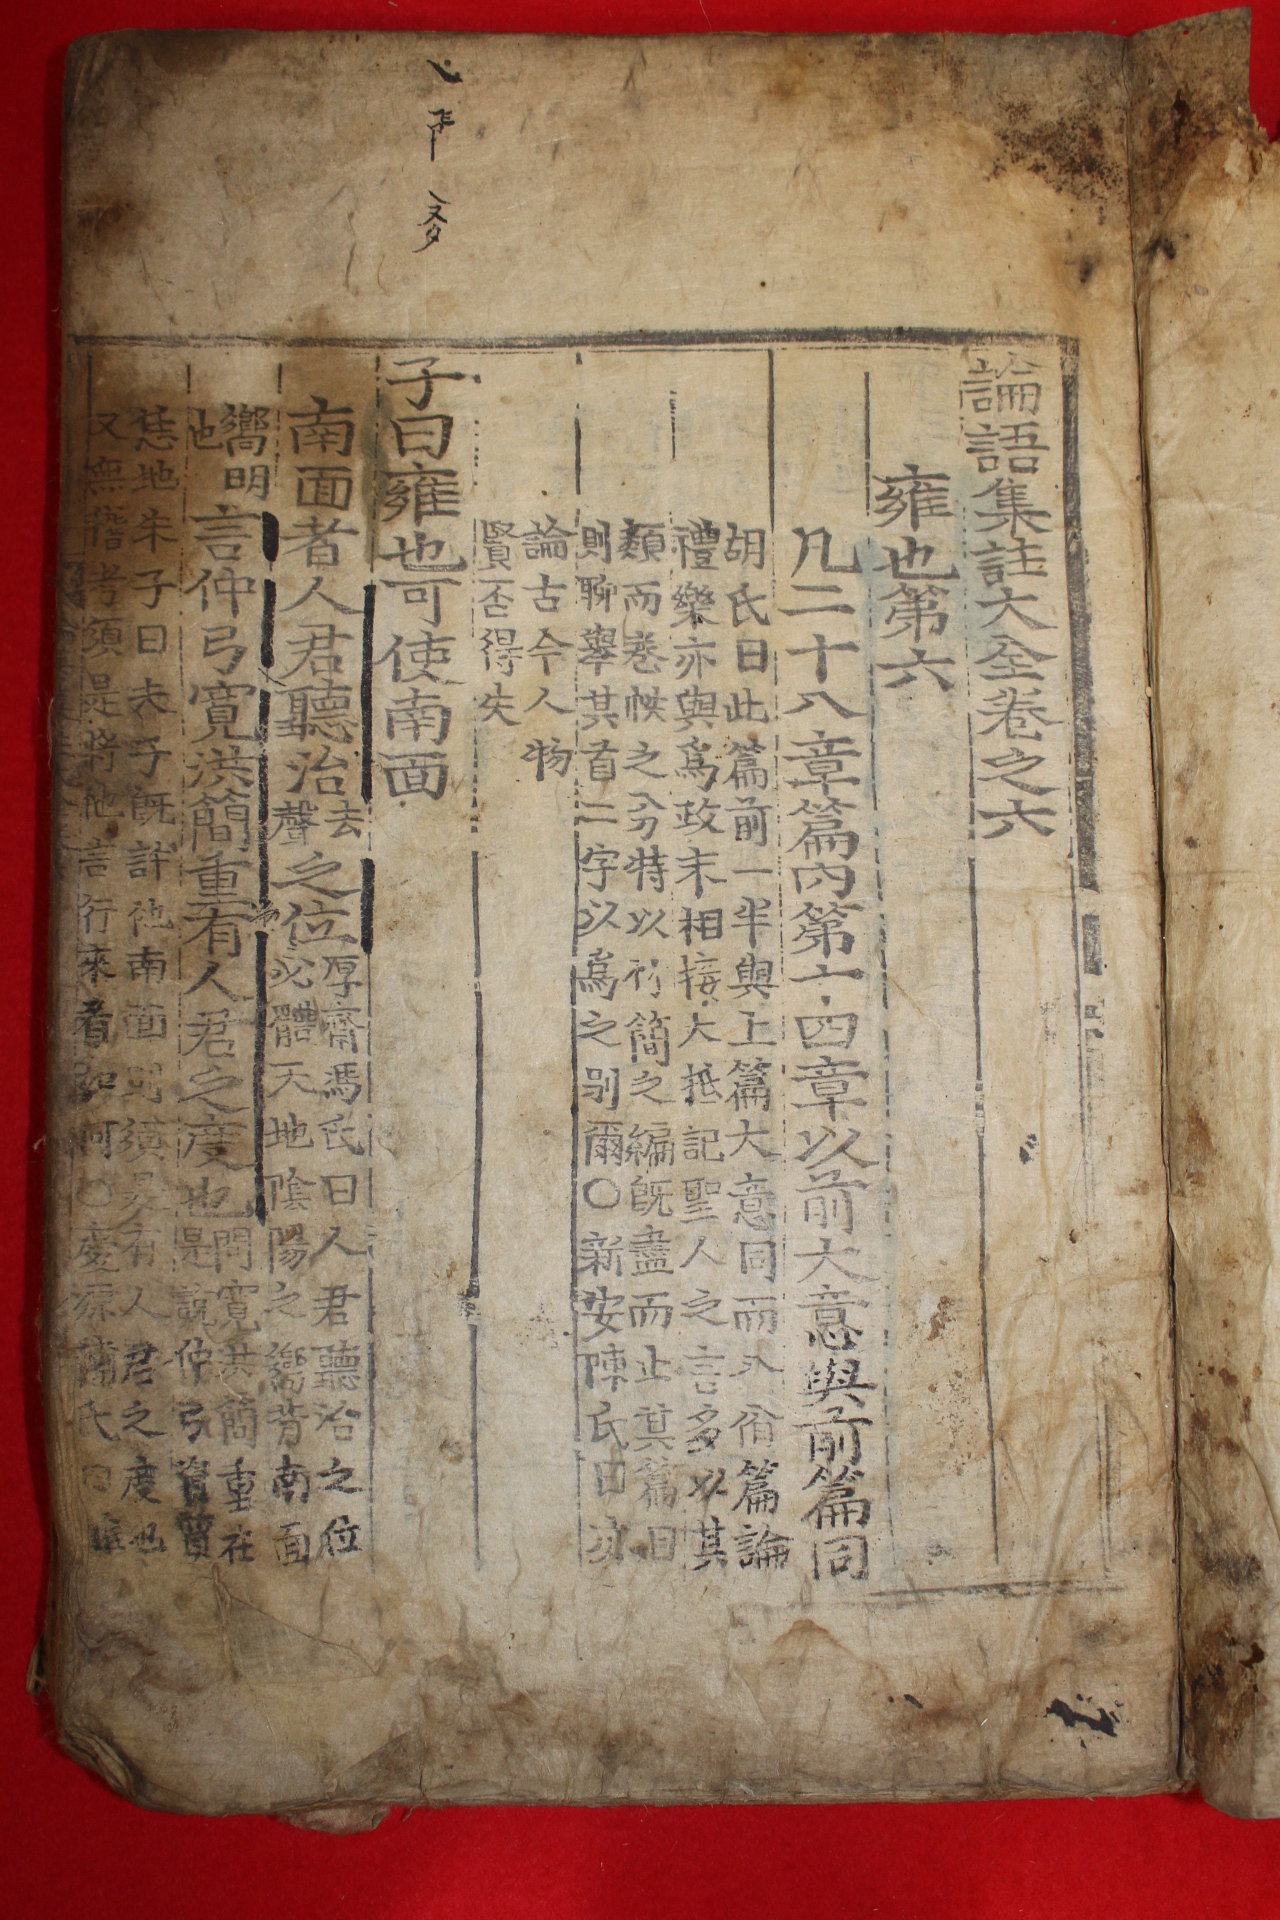 論語集註大全卷之六
雍也第六
凡二十八章篇內第十四章以前大意與前篇同
胡氏曰此篇前一半與上篇大意同而八佾篇論
禮樂亦與爲政末相接大抵記聖人之言多以其
類而卷帙之分特以竹簡之編旣盡而止其篇目
則聊擧其首二字以爲之別爾○新安陳氏曰亦
論古今人物
賢否得失
子曰雍也可使南面
南面者人君聽治去聲之位厚齋馮氏曰人君聽治之位
必體天地陰陽之嚮背南面
嚮明
也言仲弓寬洪簡重有人君之度也問寬洪簡重在
是說仲弓資質
恁地朱子曰夫子旣許他南面則須是有人君之度也
又無稽考須是將他言行來看如何○慶源輔氏曰